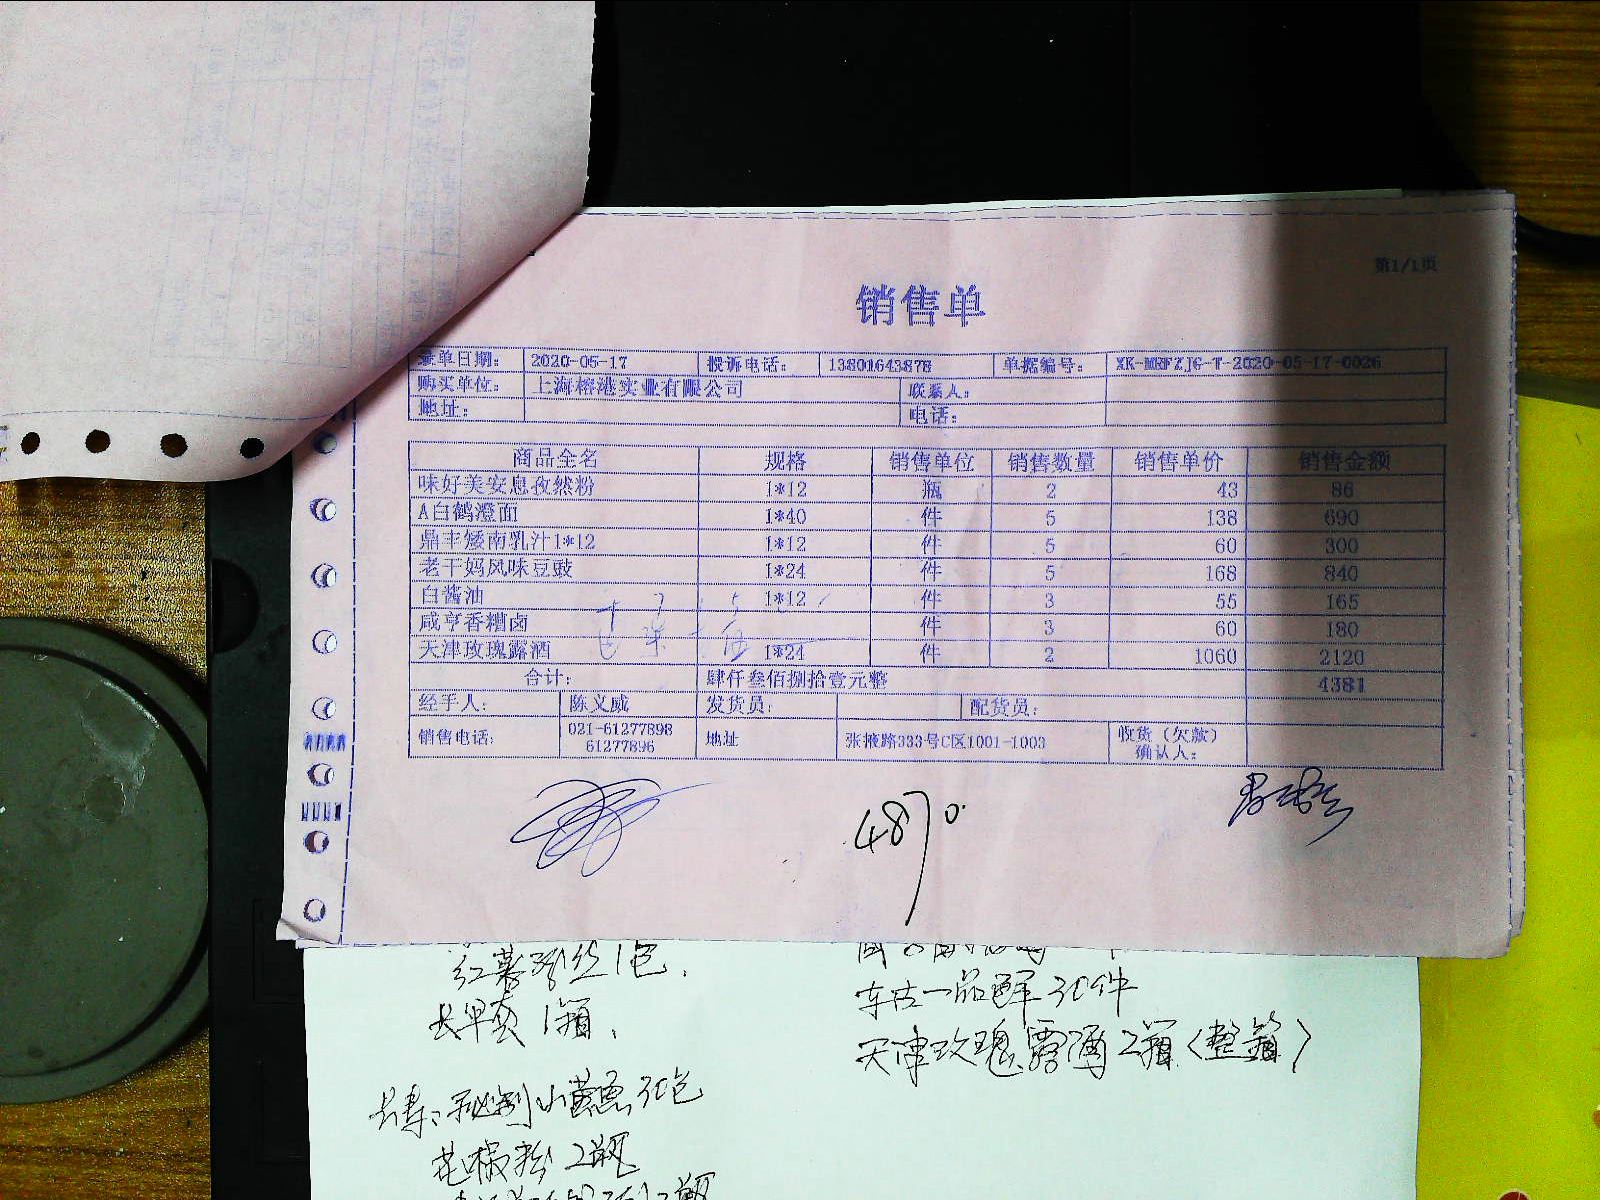 第1/1页
销售单
录单日期: 2020-05-17 投诉电话: 13801643878 单据编号: XK-MRFZJG-T-2020-05-17-0026
购买单位: 上海榕港实业有限公司 联系人:
地址: 电话:
商品全名 规格 销售单位 销售数量 销售单价 销售金额
味好美安息孜然粉 1*12 瓶 2 43 86
A白鹤澄面 1*40 件 5 138 690
鼎丰矮南乳汁1*12 1*12 件 5 60 300
老干妈风味豆豉 1*24 件 5 168 840
白酱油 1*12 件 3 55 165
咸亨香糟卤 件 3 60 180
天津玫瑰露酒 1*24 件 2 1060 2120
合计: 肆仟叁佰捌拾壹元整 4381
经手人: 陈义威 发货员: 配货员:
销售电话: 021-61277898 61277896 地址 张掖路333号C区1001-1003 收货(欠款)确认人:
红薯粉丝1包.
东古一品鲜30件
天津玫瑰露酒2箱(整箱)
花椒粉2瓶